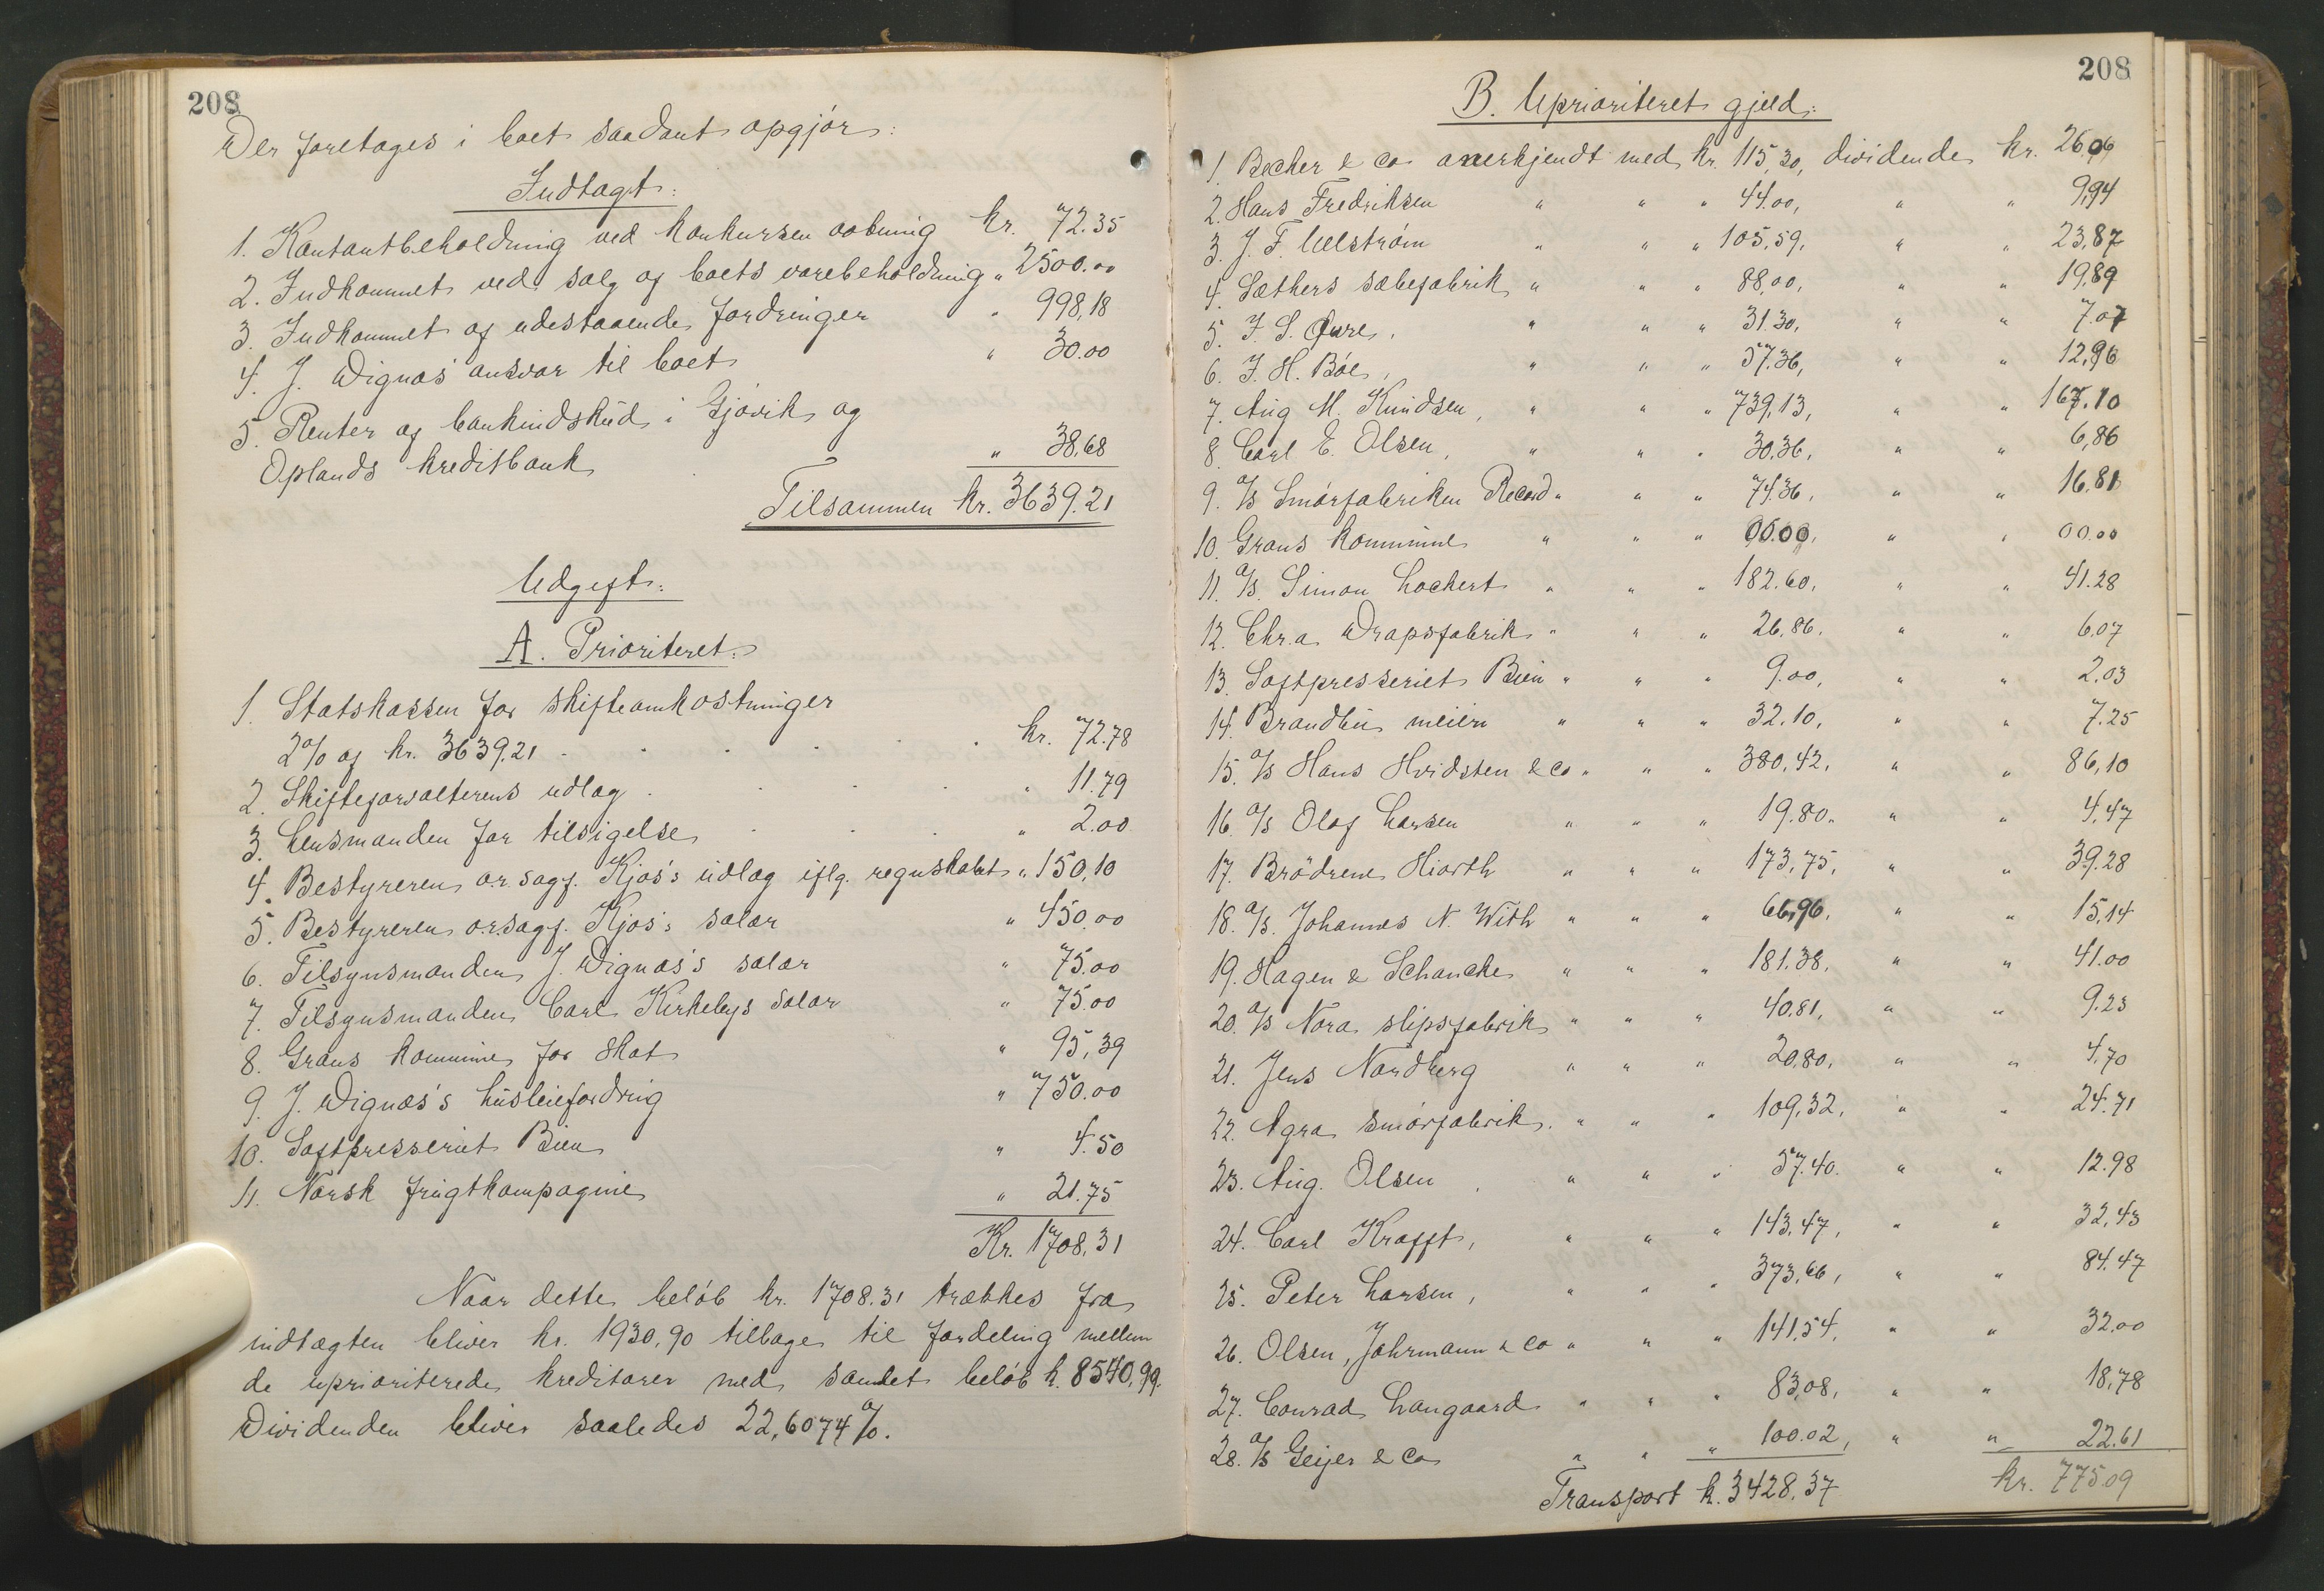 208
Der foretages i boet saadant opgjør:
Indtægt:
1. Kontantbeholdning ved konkursen aabning kr. 72.35
2. Indkommet ved salg af boets varebeholdning " 2500.00
3. Indkommet af udestaaende fordringer " 998,18
4. J. Dignæs' ansvar til boet " 30.00
5. Renter af bankindskud i Gjøvik og
Oplands kreditbank " 38,68
Tilsammen kr. 3639.21
Udgift:
A. Prioriteret:
1. Statskassen for skifteomkostninger
2% af kr. 3639.21 . . . . . kr. 72.78
2. Skifteforvalterens udlæg . . . . " 11.79
3. Lensmanden for tilsigelse . . . " 2.00
4. Bestyreren o.r.sagf. Kjos's udlæg iflg. regnskabet " 150,10
5. Bestyreren o.r.sagf. Kjos's salær " 450.00
6. Tilsynsmanden J. Dignæs's salær " 75.00
7. Tilsynsmanden Carl Kirkebys salær " 75.00
8. Grans kommune for skat " 95,39
9. J. Dignæs's husleiefordring " 750.00
10. Saftpresseriet Bien " 4.50
11. Norsk frugtkompagnie " 21.75
Kr. 1708,31
Naar dette beløb kr. 1708.31 trækkes fra
indtægten bliver kr. 1930,90 tilbage til fordeling mellem
de uprioriterede kreditorer med samlet beløb k. 8540,99.
Dividenden bliver saaledes 22,6074%.
208
B. Uprioriteret gjæld:
1. Becher & Co anerkjendt med kr. 115,30, dividende kr. 26.06
2. Hans Fredriksen " " " 44.00, " " 9,94
3. J. F. Ulstrøm " " " 105,59, " " 23,87
4. Sæthers sæbefabrik " " " 88,00, " " 19,89
5. J. S. Øvre, " " " 31.30, " " 7.07
6. J. H. Bøe, " " " 57.36, " " 12,96
7. Aug M. Knudsen, " " " 739,13, " " 167.10
8. Carl E. Olsen, " " " 30,36, " " 6,86
9. A/S Smørfabriken Record " " " 74.36, " " 16,81
10. Grans kommune " " " 00.00, " " 00.00
11. A/S. Simon Lochert " " " 182.60, " " 41.28
12. Chr.a Dropsfabrik " " " 26,86. " " 6,07
13. Saftpresseriet Bien " " " 9.00, " " 2.03
14. Brandbu meieri " " " 32.10, " " 7.25
15. A/S Hans Hvidsten & Co " " " 380,42, " " 86,10
16. A/S Olaf Larsen " " " 19.80. " " 4,47
17. Brødrene Hiorth " " " 173,75, " " 39.28
18. A/S. Johannes N. With " " " 66,96, " " 15,14
19. Hagen & Schancke " " " 181.38, " " 41.00
20. A/S Nora slipsfabrik " " " 40.81, " " 9.23
21. Jens Nordberg " " " 20,80, " " 4,70
22. Agra smørfabrik. " " " 109,32, " " 24.71
23. Aug. Olsen " " " 57.40. " " 12.98
24. Carl Krafft, " " " 143,47, " " 32,43
25. Peter Larsen, " " " 373,66, " " 84.47
26. Olsen, Johrmann & Co " " " 141,54, " " 32,00
27. Conrad Langaard " " " 83,08, " " 18,78
28. A/S Geijer & Co " " " 100.02, " " 22.61
Transport k. 3428,37 kr. 775.09